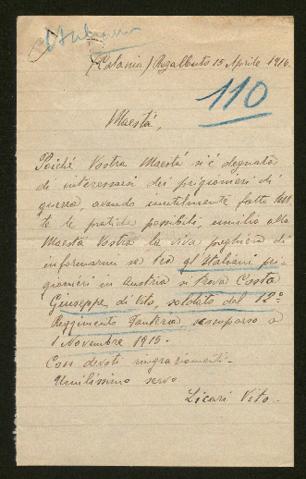 Italiano
(Catania) Regalbuto 15 Aprile 1916.
110
Maestà,
Poiché Vostra Maestà si è degnata
di interessarsi dei prigionieri di
guerra avendo fatte tut
te le pratiche possibili, umilio alla
Maestà Vostra la viva preghiera di
informarmi se tra gl'Italiani pri-
gionieri in Austria si trova Costa
Giuseppe di Vito, soldato del 12°
Reggimento Fanteria, scomparso a
1 Novembre 1915.
Con devoti ringraziamenti.
Umilissimo servo
Licari Vito.